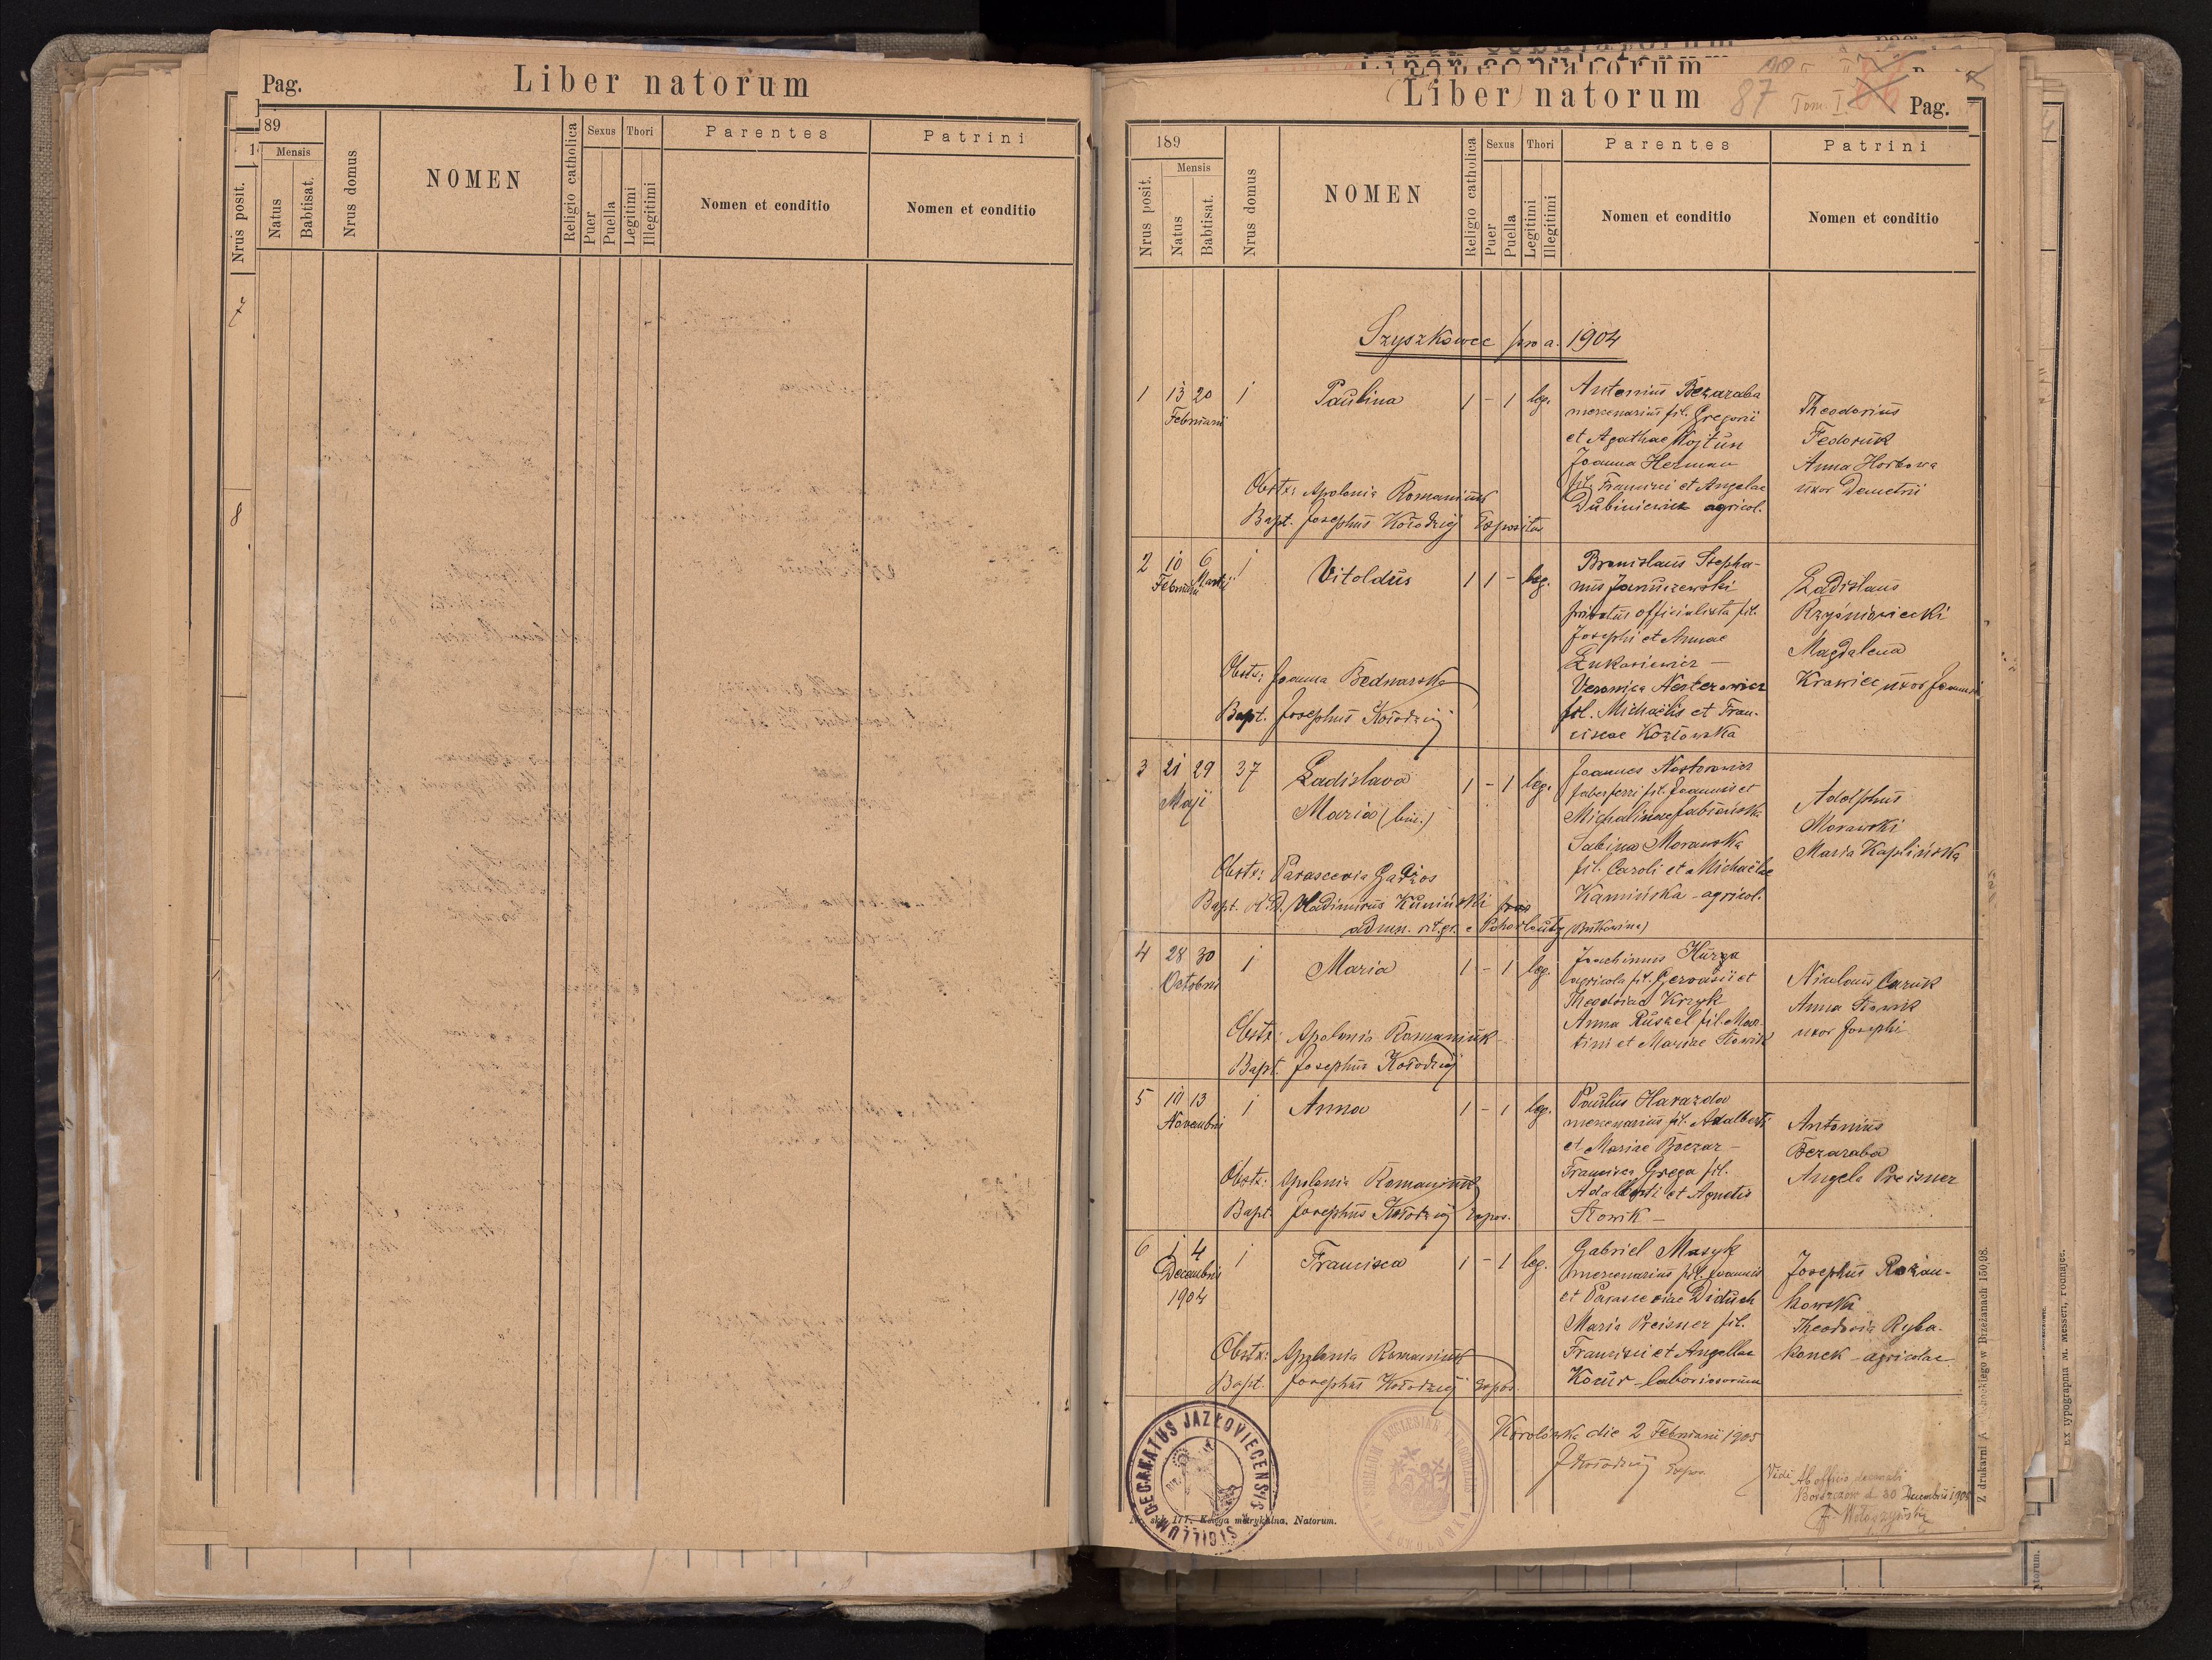 Pag.
Liber natorum
189
Mensis
Nrus posit.
Natus
Babtisat.
Nrus domus
NOMEN
Religio catholica
Sexus
Puer
Puella
Thori
Legitimi
Illegitimi
Parentes
Nomen et conditio
Patrini
Nomen et conditio
7
8
Liber natorum
87 Tom. I.
Pag.
189
Mensis
Nrus posit.
Natus
Babtisat.
Nrus domus
NOMEN
Religio catholica
Sexus
Puer
Puella
Thori
Legitimi
Illegitimi
Parentes
Nomen et conditio
Patrini
Nomen et conditio
Szyszkowce pro a. 1904
1 13 20 1 Paulina 1 - 1 leg.
Februarii
Antonius Bezaraba
mercenarius fil. Gregorii
et Agathae Wojtun
Joanna Herman
fil. Francisci et Angelae
Dubiniewicz agricol.
Theodorius
Fedoruk
Anna Horbowa
uxor Demetrii
Obstx: Apolonia Romaniuk
Bapt. Josephus Kołodziej Expositus
2 10 6 1 Vitoldus 1 1 - leg.
Februarii Martii
Bronislaus Stepha-
nus Januszewski
privatus officialista fil.
Josephi et Annae
Łukasiewicz -
Veronica Nesterowicz
fil. Michaëlis et Fran-
ciscae Kozłowska
Ladislaus
Rzyśniowiecki
Magdalena
Krawiec uxor Joannis
Obstx: Joanna Bednarska
Bapt. Josephus Kołodziej
3 21 29 37 Ladislava 1 - 1 leg.
Maji
Maria (bin.)
Joannes Nestorowicz
faber ferri fil. Joannis et
Michalinae Jabłońska
Sabina Morawska
fil. Caroli et Michaëlae
Kamińska - agricol.
Adolphus
Morawski
Maria Kaplińska
Obstx: Parascevia Gadzos
Bapt. Vladimirus Kuniński
admn. rit. gr. e Pohorloutz (Bukowina)
4 28 30 1 Maria 1 - 1 leg.
Octobris
Joachimus Hurza
agricola fil. Gervasii et
Theodoriae Krzyk
Anna Ruszel fil. Mar-
tini et Mariae Słowik
Nicolaus Caruk
Anna Słowik
uxor Josephi
Obstx: Apolonia Romaniuk
Bapt. Josephus Kołodziej
5 10 13 1 Anna 1 - 1 leg.
Novembris
Paulus Harazda
mercenarius fil. Adalberti
et Mariae Boczar -
Francisca Grega fil.
Adalberti et Agnetis
Słowik -
Antonius
Bezaraba
Angela Preisner
Obstx: Apolonia Romaniuk
Bapt. Josephus Kołodziej Expos.
6 1 4 1 Francisca 1 - 1 leg.
Decembris
1904
Gabriel Masyk
mercenarius fil. Joannis
et Parasceviae Diduch
Maria Preisner fil.
Francisci et Angellae
Kozur - laboriosorum
Josephus Rożan-
kowski
Theodosia Ryba-
konek - agricolae
Obstx: Apolonia Romaniuk
Bapt. Josephus Kołodziej Expos.
Korolówka die 2 Februarii 1905
JKołodziej Expos.
Vidi Ab officio decanali
Borszczów d. 30 Decembris 1905
SIGILLUM DECANATUS JAZŁOVIECENSIS
Nr. skł. 177. Księga metrykalna. Natorum.
w Brzeżanach 150/98.
Ex typographia M. Messeri, Podhajce.